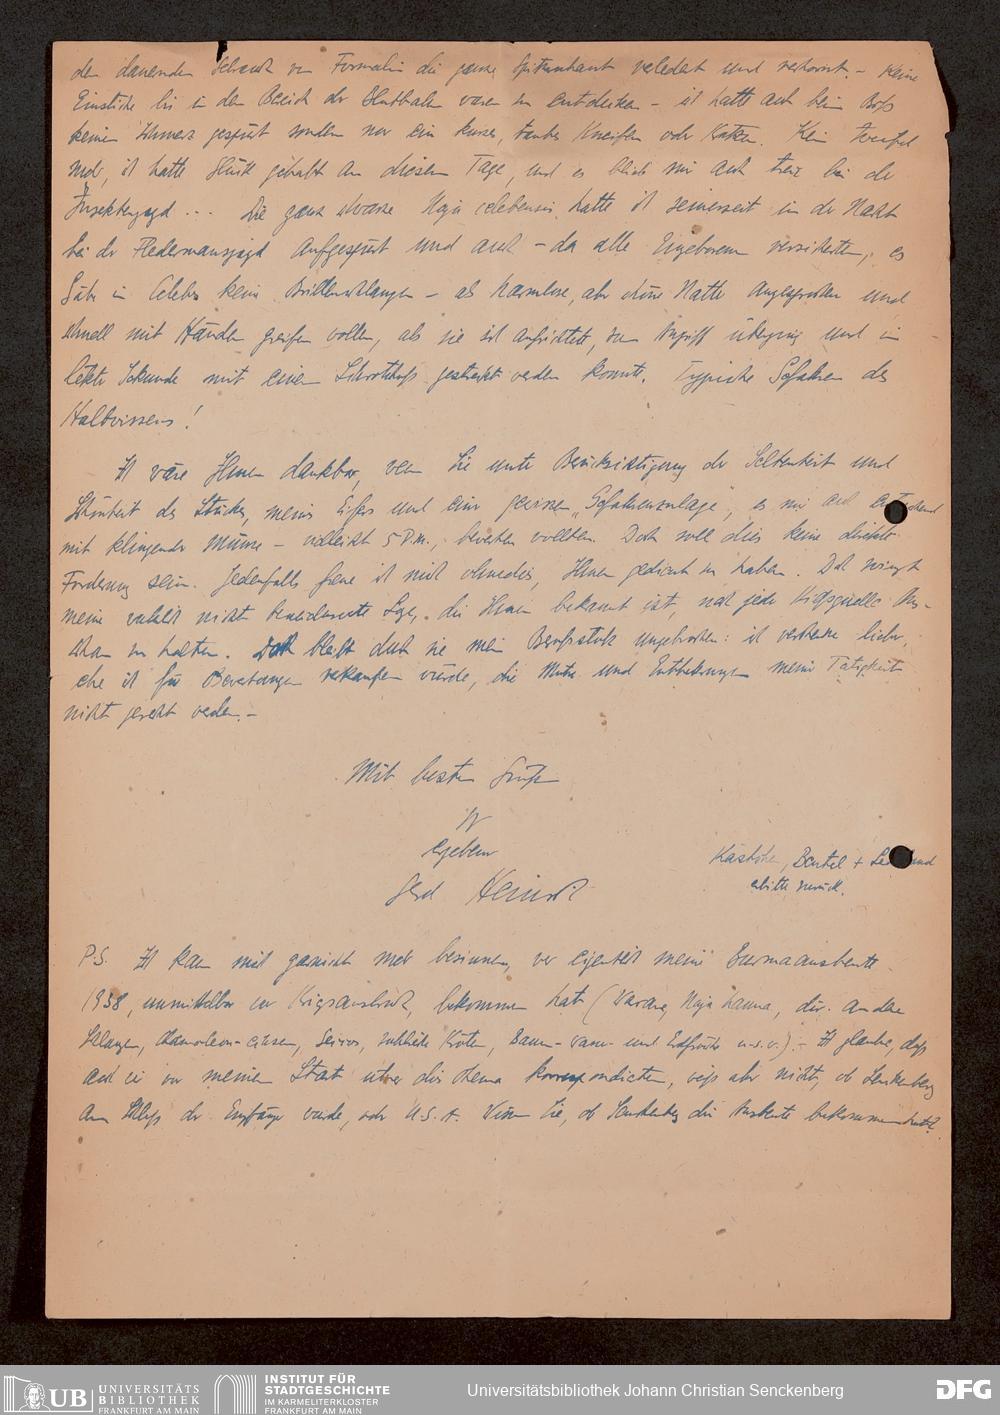 den dauernden Gebrauch von Formalin die ganze Spitzenhaut veledert und verhornt. – Keine
Einstiche bis in den Bereich der Blutbahn waren zu entdecken – ich hatte auch beim Biss
keinen Schmerz gespürt sondern nur ein kurzes, taubes Kneifen oder Kratzen. Kein Zweifel
mehr, ich hatte Glück gehabt an diesem Tage, und es blieb mir auch treu bei der
Insektenjagd ... Die ganz schwarze Naja celebensis hatte ich seinerzeit in der Nacht
bei der Fledermausjagd aufgespürt und auch – da alle Eingeborenen versicherten, es
gäbe in Celebes keine Brillenschlangen – als harmlose, aber schöne Natter angesprochen und
schnell mit Händen greifen wollen, als sie sich aufrichtete, zum Angriff überging und in
letzter Sekunde mit einem Schrotschuss gestreckt werden konnte. Typische Gefahren des
Halbwissens!
Ich wäre Ihnen dankbar, wenn Sie unter Berücksichtigung der Seltenheit und
Schönheit des Stückes, meines Eifers und einer gewissen „Gefahrenzulage", es mir auch
mit klingender Münze – vielleicht 5 D.M., bewerten wollten. Doch soll dies keine direkte
Forderung sein. Jedenfalls freue ich mich ohnedies, Ihnen gedient zu haben. Doch zwingt
meine wahrlich nicht beneidenswerte Lage, die Ihnen bekannt ist, nach jeder Hilfsquelle Aus-
schau zu halten. Doch bleibt durch sie mein Berufsstolz ungebrochen: ich verschenke lieber,
ehe ich für Bewertungen verkaufen würde, die Mühe und Entbehrungen meiner Tätigkeit
nicht gerecht werden. –
Mit besten Grüßen
Ihr
ergebener
Gerd Heinrich
Kästchen, Beutel +
erbitte zurück.
P.S. Ich kann mich garnicht mehr besinnen, wer eigentlich meine Burmaausbeute
1938, unmittelbar vor Kriegsausbruch, bekommen hat (Warane, Naja hanna, div. andere
Schlangen, Chamaeleon- Kröten, Baum- und Erdfrösche u.s.w.). – Ich glaube, dass
auch wir vor meinem Start über dies Thema korrespondierten, weiss aber nicht, ob Senckenberg
am Schluss der Empfänger wurde, oder U.S.A. Wissen Sie, ob Senckenberg die Ausbeute bekommen hat?
UB UNIVERSITÄTS
BIBLIOTHEK
FRANKFURT AM MAIN
INSTITUT FÜR
STADTGESCHICHTE
IM KARMELITERKLOSTER
FRANKFURT AM MAIN
Universitätsbibliothek Johann Christian Senckenberg
DFG